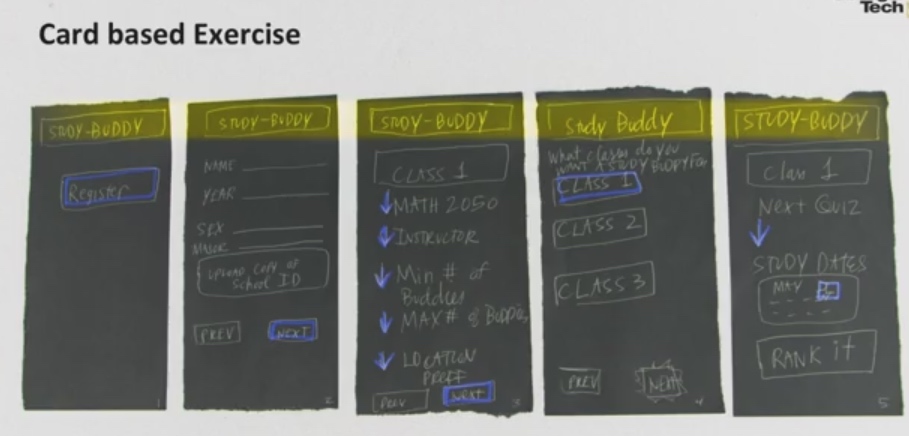 Tech
Card based Exercise
STUDY-BUDDY
Register
1
STUDY-BUDDY
NAME
YEAR
SEX
MAJOR
UPLOAD COPY OF
School ID
PREV
NEXT
2
STUDY-BUDDY
CLASS 1
MATH 2050
INSTRUCTOR
Min # of
Buddies
MAX # of Buddies
LOCATION
PREFF
PREV
NEXT
3
Study Buddy
What classes do you
WANT A STUDY BUDDY FOR
CLASS 1
CLASS 2
CLASS 3
PREV
NEXT
4
STUDY-BUDDY
Class 1
Next Quiz
STUDY DATES
MAY
RANK it
5